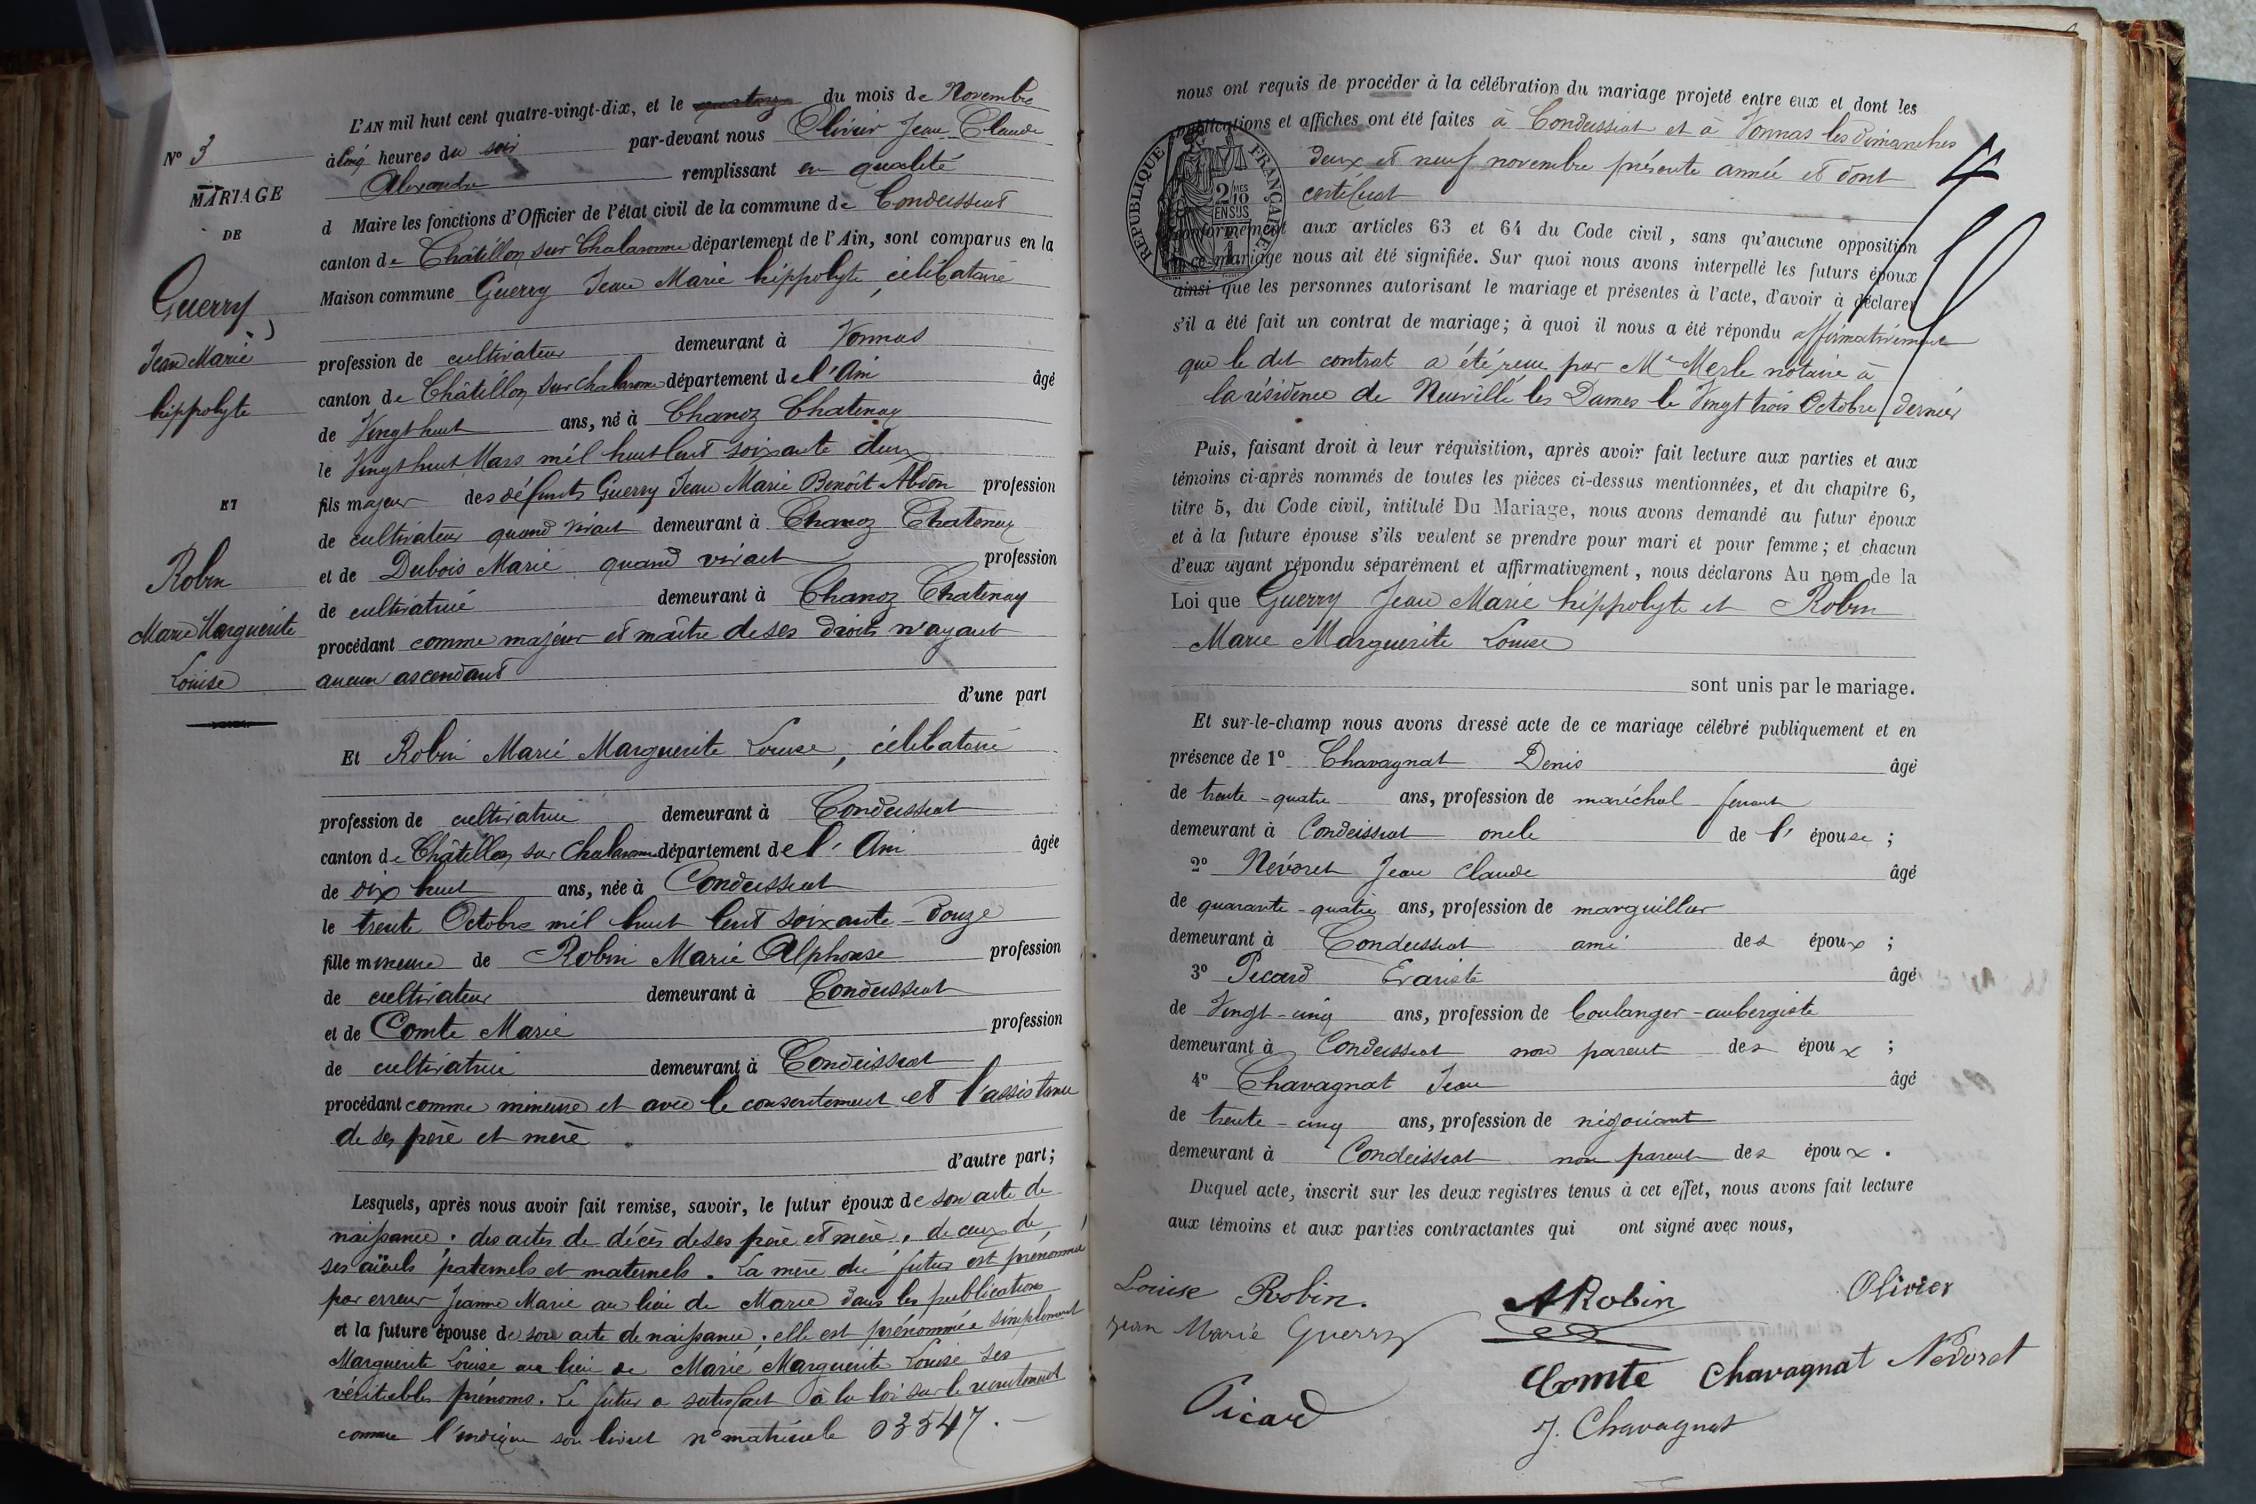 L'AN mil huit cent quatre-vingt-dix, et le quatorze du mois de Novembre
à cinq heures du soir par-devant nous Olivier Jean Claude
Alexandre remplissant en qualité
d Maire les fonctions d'Officier de l'état civil de la commune de Condeissiat
canton de Châtillon sur Chalaronne département de l'Ain, sont comparus en la
Maison commune Guerry Jean Marie hippolyte, célibataire
profession de cultivateur demeurant à Vonnas
canton de Châtillon sur Chalaronne département de l'Ain âgé
de Vingt huit ans, né à Chanoz Chatenay
le Vingt huit Mars mil huit Cent soixante deux
fils majeur des défunts Guerry Jean Marie Benoît Abdon profession
de cultivateur quand vivait demeurant à Chanoz Chatenay
et de Dubois Marie quand vivait profession
de cultivatrice demeurant à Chanoz Chatenay
procédant comme majeur et maître de ses droits n'ayant
aucun ascendant
d'une part
Et Robin Marie Marguerite Louise, célibataire
profession de cultivatrice demeurant à Condeissiat
canton de Châtillon sur Chalaronne département de l'Ain âgée
de dix huit ans, née à Condeissiat
le trente Octobre mil huit Cent soixante-douze
fille mineure de Robin Marie Alphonse profession
de cultivateur demeurant à Condeissiat
et de Comte Marie profession
de cultivatrice demeurant à Condeissiat
procédant comme mineure et avec le consentement et l'assistance
de ses père et mère
d'autre part;
Lesquels, après nous avoir fait remise, savoir, le futur époux de son acte de
naissance; des actes de décès de ses père et mère, de ceux de
ses aïeuls paternels et maternels. La mère du futur est prénommée
par erreur Jeanne Marie au lieu de Marie dans les publications
et la future épouse de son acte de naissance; elle est prénommée simplement
Marguerite Louise au lieu de Marie Marguerite Louise ses
véritables prénoms. Le futur a satisfait à la loi sur le recrutement
comme l'indique son livret n° matricule 03547.
N° 3
MARIAGE
DE
Guerry
Jean Marie
hippolyte
ET
Robin
Marie Marguerite
Louise
nous ont requis de procéder à la célébration du mariage projeté entre eux et dont les
publications et affiches ont été faites à Condeissiat et à Vonnas les dimanches
deux et neuf novembre présente année et dont
certificat
conformément aux articles 63 et 64 du Code civil, sans qu'aucune opposition
à ce mariage nous ait été signifiée. Sur quoi nous avons interpellé les futurs époux
ainsi que les personnes autorisant le mariage et présentes à l'acte, d'avoir à déclarer
s'il a été fait un contrat de mariage; à quoi il nous a été répondu affirmativement
que le dit contrat a été reçu par Me Merle notaire à
la résidence de Neuville les Dames le Vingt trois Octobre dernier
Puis, faisant droit à leur réquisition, après avoir fait lecture aux parties et aux
témoins ci-après nommés de toutes les pièces ci-dessus mentionnées, et du chapitre 6,
titre 5, du Code civil, intitulé Du Mariage, nous avons demandé au futur époux
et à la future épouse s'ils veulent se prendre pour mari et pour femme; et chacun
d'eux ayant répondu séparément et affirmativement, nous déclarons Au nom de la
Loi que Guerry Jean Marie hippolyte et Robin
Marie Marguerite Louise
sont unis par le mariage.
Et sur-le-champ nous avons dressé acte de ce mariage célébré publiquement et en
présence de 1° Chavagnat Denis âgé
de trente-quatre ans, profession de maréchal ferrant
demeurant à Condeissiat oncle de l'épouse;
2° Névoret Jean Claude âgé
de quarante-quatre ans, profession de marguillier
demeurant à Condeissiat ami des époux;
3° Picard Evariste âgé
de Vingt-cinq ans, profession de boulanger-aubergiste
demeurant à Condeissiat non parent des époux;
4° Chavagnat Jean âgé
de trente-cinq ans, profession de négociant
demeurant à Condeissiat non parent des époux.
Duquel acte, inscrit sur les deux registres tenus à cet effet, nous avons fait lecture
aux témoins et aux parties contractantes qui ont signé avec nous,
Louise Robin. ARobin Olivier
Jean Marie Guerry
Comte Chavagnat Nevoret
Picard
J. Chavagnat
RÉPUBLIQUE FRANÇAISE
2 MES
10
EN SUS